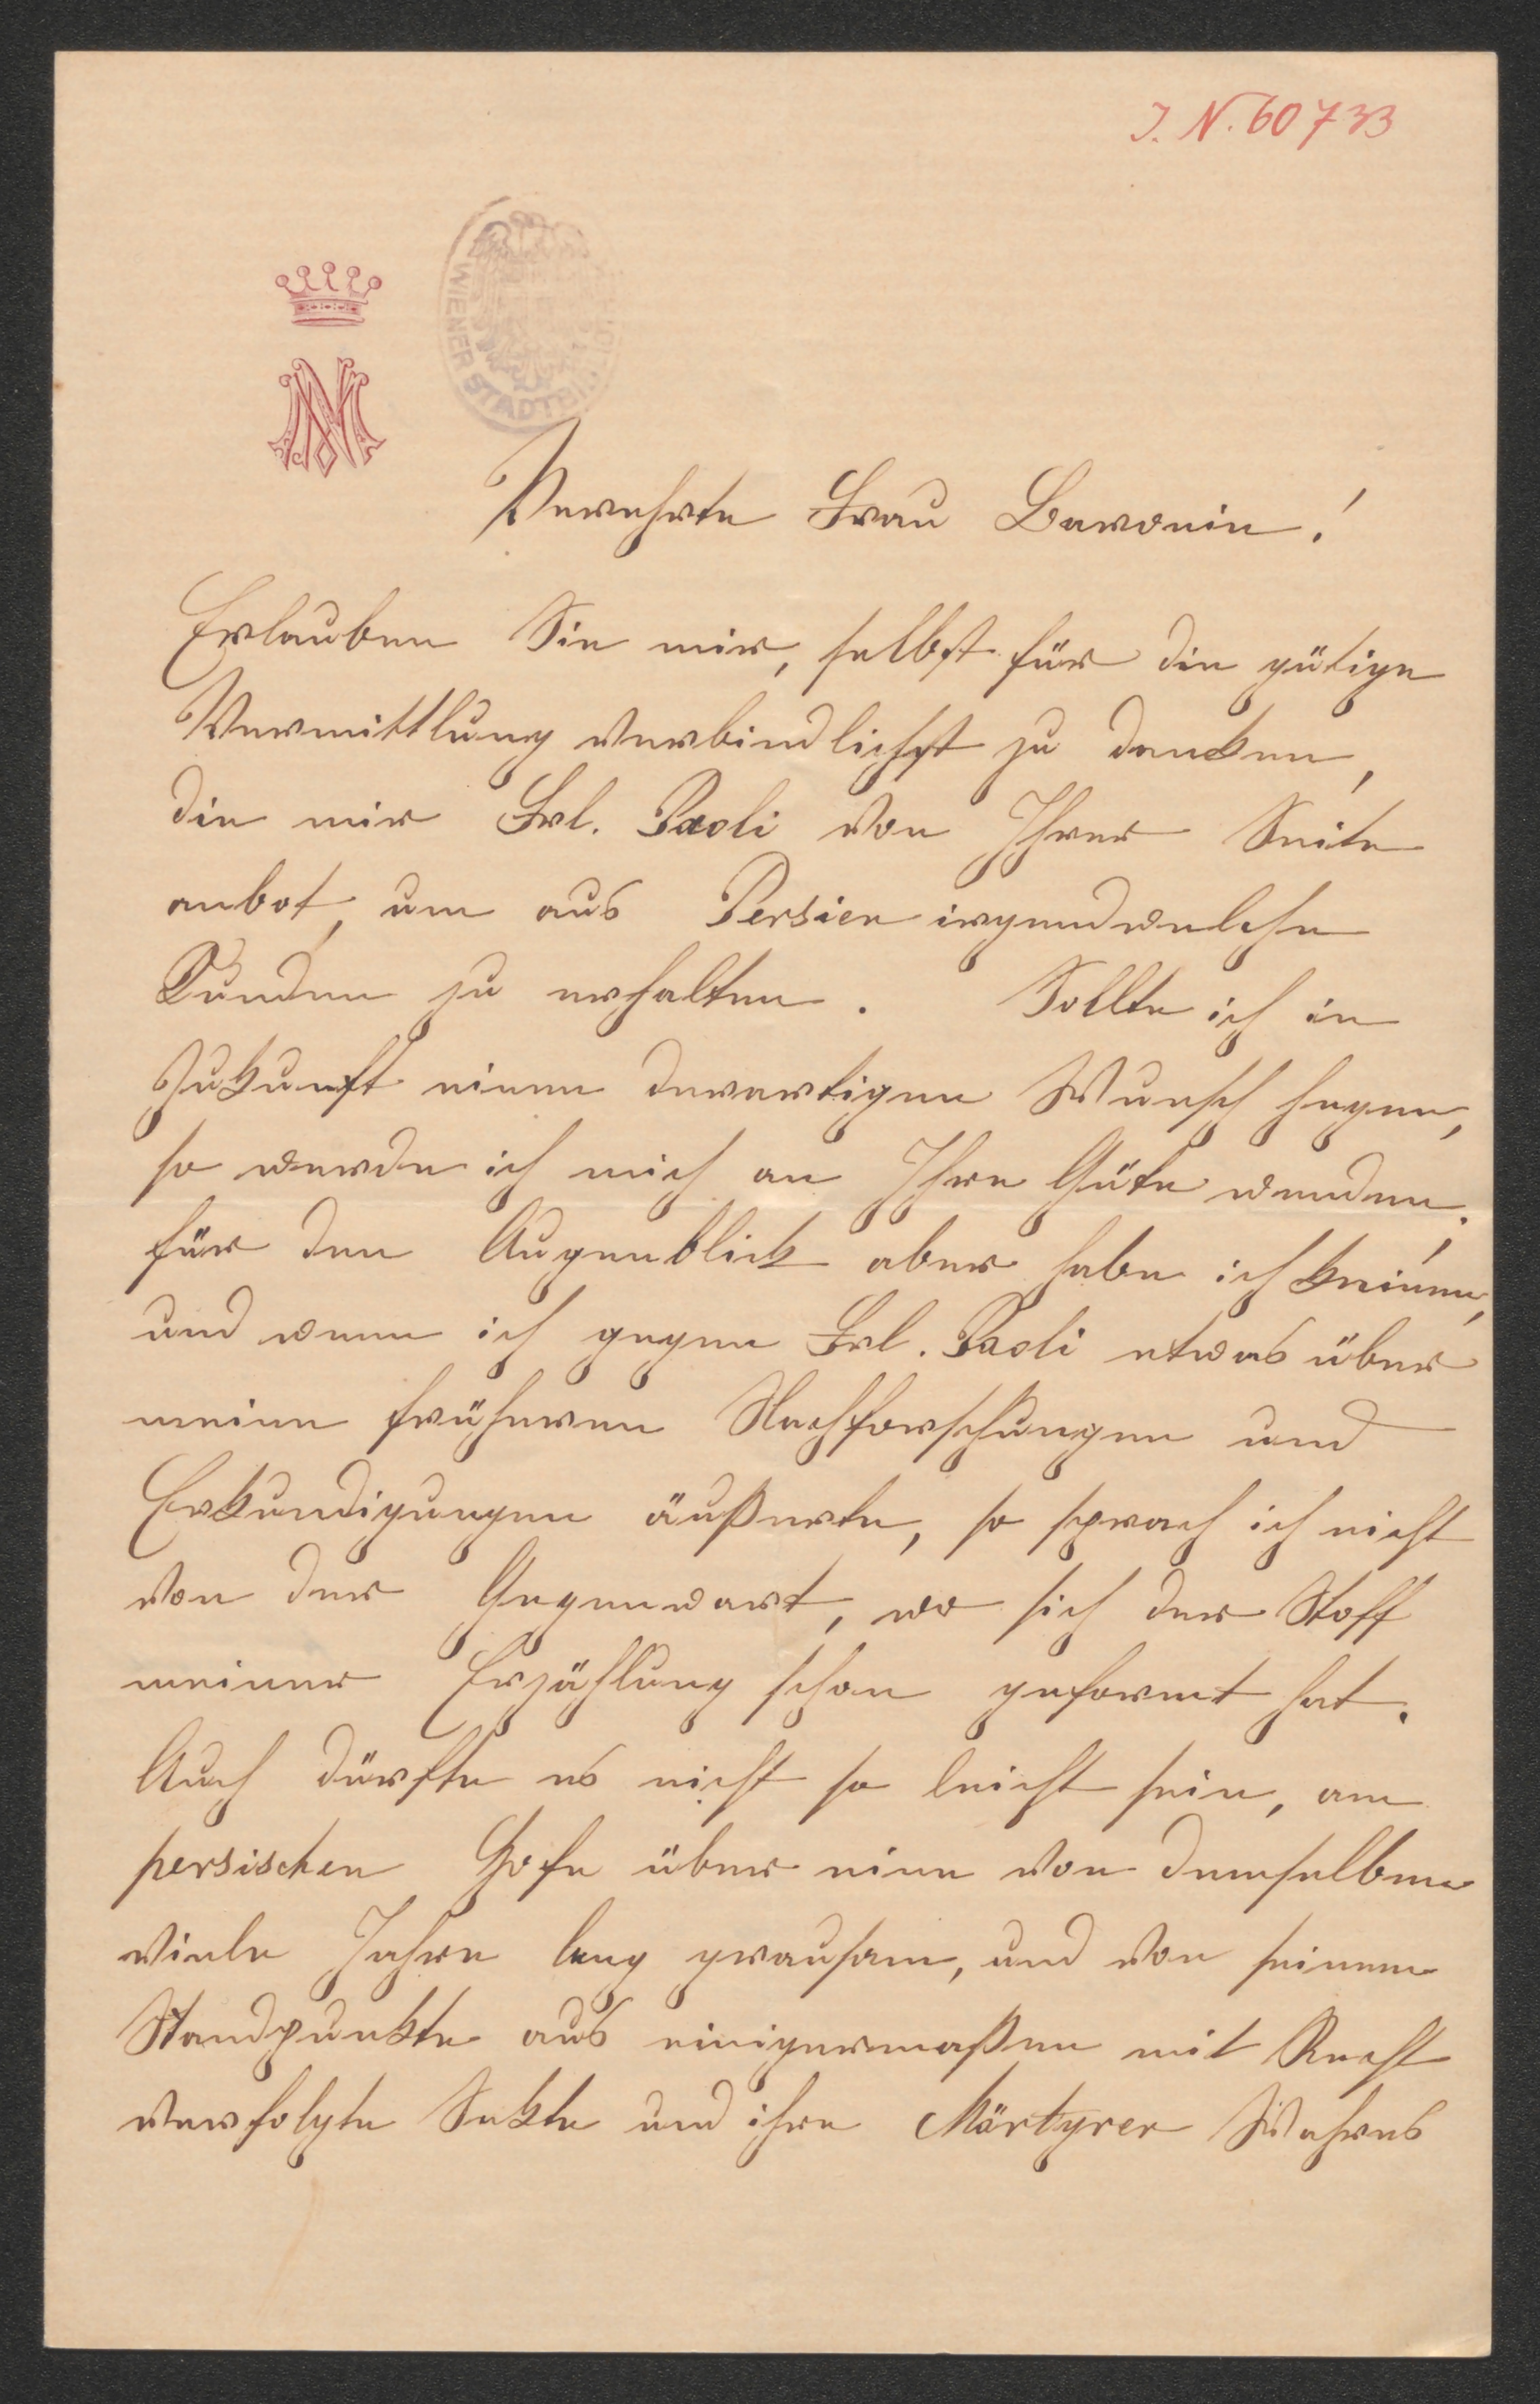 J. N. 60733
WIENER STADTBI
Verehrte Frau Baronin!
Erlauben Sie mir, selbst für die gütige
Vermittlung verbindlichst zu danken,
die mir Frl. Paoli von Ihrer Seite
anbot, um aus Persien irgendwelche
Kunden zu erhalten. Sollte ich in
Zukunft einen derartigen Wunsch hegen,
so werde ich mich an Ihre Güte wenden;
für den Augenblick aber habe ich keinen,
und wenn ich gegen Frl. Paoli etwas über
meine früheren Nachforschungen und
Erkundigungen äußerte, so sprach ich nicht
von der Gegenwart, wo sich der Stoff
meiner Erzählung schon geformt hat.
Auch dürfte es nicht so leicht sein, am
persischen Hofe über eine von demselben
viele Jahre lang grausam, und von seinem
Standpunkte aus einigermaßen mit Recht
verfolgte Sekte und ihre Märtyrer Wahres